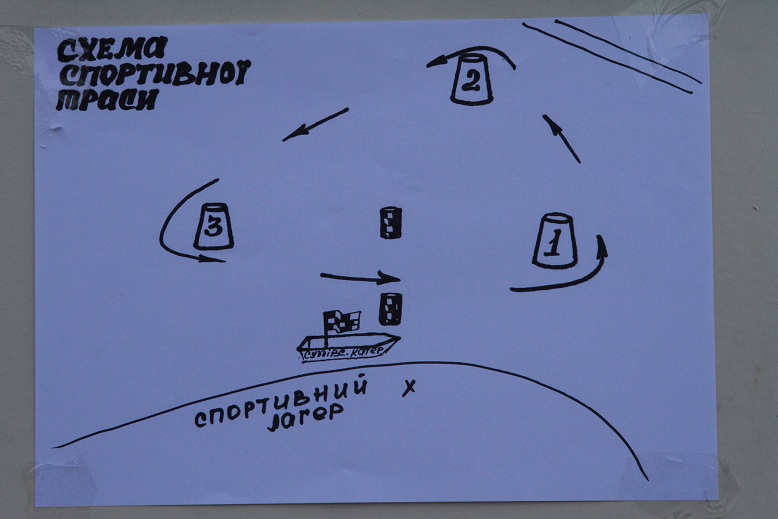 СХЕМА
СПОРТИВНОЇ
ТРАСИ
2
3
1
СПОРТИВНИЙ Х
ЛАГЕР